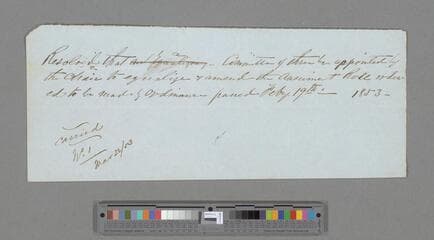 Resolved that Committee of three be appointed by
the Chair to equalize & amend the Assessment Roll order
ed to be made by Ordinance passed Feby 19th 1853
carried
No 1
Mar 21/53